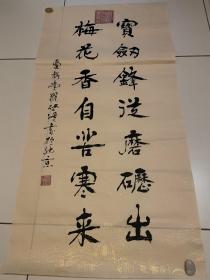 寶劍鋒從磨礪出
梅花香自苦寒来
書於北京